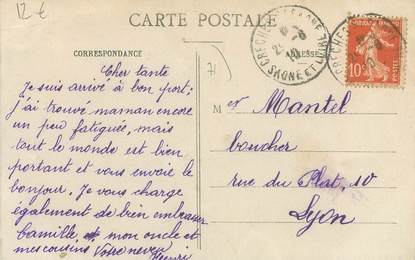 12 €
CARTE POSTALE
CORRESPONDANCE
ADRESSE
71
10
Cher tante
Je suis arrivé à bon port;
j'ai trouvé maman encore
un peu fatiguée, mais
tout le monde est bien
portant et vous envoie le
bonjour. Je vous charge
également de bien embrasser
Camille et mon oncle et
mes cousins Votre neveu
Henri
Mer Mantel
boucher
rue du Plat, 10
Lyon